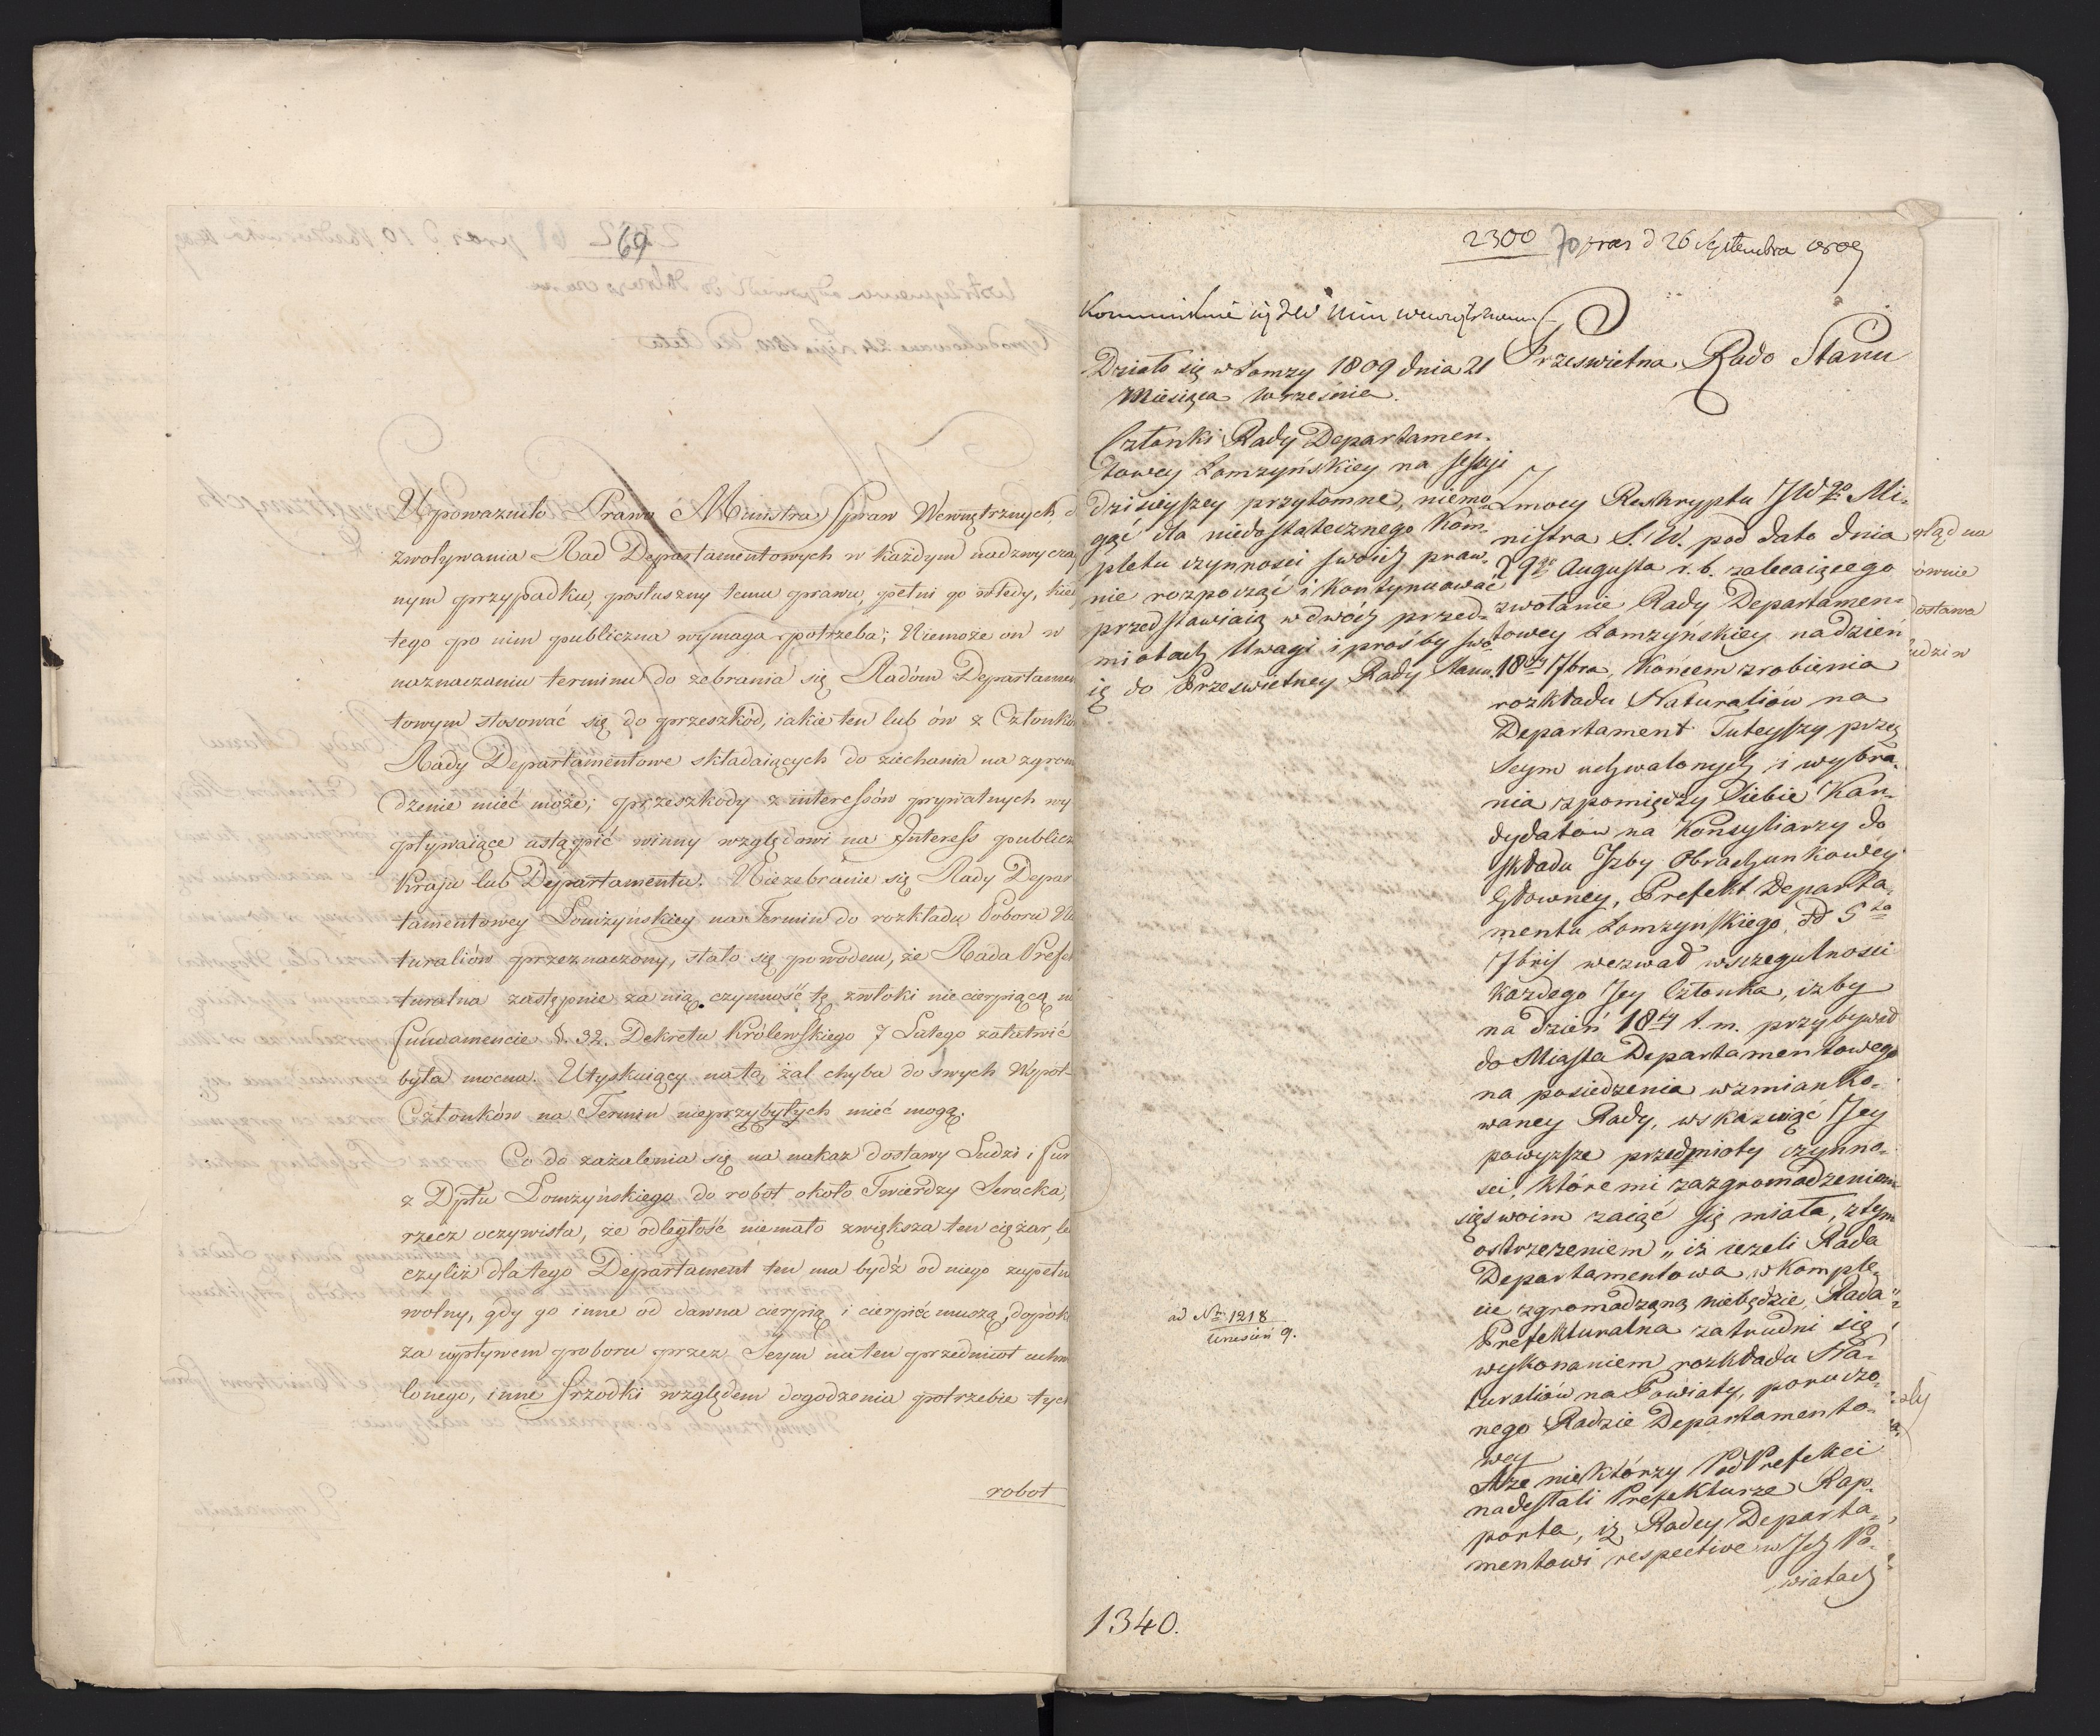 69
Upoważniło Prawo Ministra Spraw Wewnętrznych d
zwoływania Rad Departamentowych w każdym nadzwycza
nym przypadku, posłuszny temu prawu, pełni go wtedy, kie
tego po nim publiczna wymaga potrzeba; Niemoże on w
naznaczaniu terminu do zebrania się Radóm Departamen
towym stosować się do przeszkód, iakie ten lub ów z Członkó
Rady Departamentowe składaiących do ziechania na zgrom
dzenie mieć może; przeszkody z interessów prywatnych wy
pływaiące ustąpić winny względowi na Interess publicz
Kraju lub Departamentu. Niezebranie się Rady Depar
tamentowey Łomżyńskiey na Termin do rozkładu Poboru Na
turaliów przeznaczony, stało się powodem, że Rada Prefek
turalna zastępnie za nią czynność tę zwłoki niecierpiącą w
fundamencie §. 32. Dekretu Królewskiego 7 Lutego załatwić
była mocna. Utyskuiący na to, żal chyba do swych Wspól-
Członków na Termin nieprzybyłych mieć mogą.
Co do zażalenia się na nakaz dostawy Ludzi i fur
z Dptu Łomżyńskiego do robót około Twierdzy Serocka,
rzecz oczywista, że odległość niemało zwiększa ten ciężar, le
czyliż dlatego Departament ten ma bydź od niego zupełn
wolny, gdy go inne od dawna cierpią i cierpieć muszą, dopók
za wpływem poboru przez Seym na ten przedmiot uchwa
lonego, inne śrzodki względem dogodzenia potrzebie tych
robot
2300 70 praes d 26 Septembra 1809
Kommunikuie się JW Min Wewnętrznemu
Działo się w Łomży 1809 dnia 21
Miesiąca Września.
Członki Rady Departamen-
towey Łomżyńskiey na Sessyi
dzisieyszey przytomne, niemo-
gąc dla niedostatecznego Kom-
pletu czynności swoich praw-
nie rozpocząć i kontynuować
przedstawiaią w dwóch przed-
miotach Uwagi i prośby swo-
ię do Prześwietney Rady Stanu.
ad Nro 1218
Wrzesień 9.
1340.
Prześwietna Rado Stanu
Z mocy Reskryptu JWgo Mi-
nistra S. W. pod dato dnia
29go Augusta r. b. zalecaiącego
zwołanie Rady Departamen-
towey Łomżyńskiey na dzień
18ty 7bra, Końcem zrobienia
rozkładu Naturaliów na
Departament Tuteyszy przez
Seym uchwalonych, i wybra-
nia zpomiędzy Siebie Kan-
dydatów na Konsyliarzy do
składu Izby Obrachunkowey
Główney, Prefekt Departa-
mentu Łomżyńskiego dd 5ta
7bris wezwał wszczegulności
każdego Jey Członka, iżby
na dzień 18ty t. m. przybywał
do Miasta Departamentowego
na posiedzenia wzmianko-
waney Rady, wskazuiąc Jey
powyższe przedmioty czynno-
sci, któremi zazgromadzeniem
się swoim zaiąć się miała, ztym
ostrzeżeniem „iż ieżeli Rada
Departamentowa w Komple-
cie zgromadzoną niebędzie, Rada
Prefekturalna zatrudni się
wykonaniem rozkładu Na-
turaliów na Powiaty, poruczo-
nego Radzie Departamento-
wey
Aże niektórzy PodPrefekci
nadesłali Prefekturze Rap-
porta, iż Radcy Departa-
mentowi respective w Ich Po-
wiatach
gląd na
ównie
dostawa
udzi w